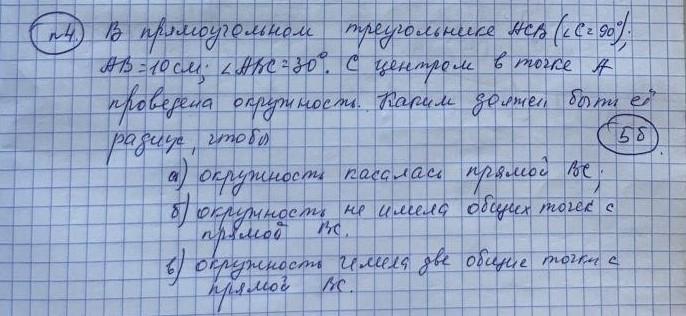 п4. В прямоугольном треугольнике ACB (∠C=90°);
AB=10см; ∠ABC=30°. С центром в точке A
проведена окружность. Каким должен быть её
радиус, чтобы
5б.
а) окружность касалась прямой BC;
б) окружность не имела общих точек с
прямой BC.
в) окружность имела две общие точки с
прямой BC.